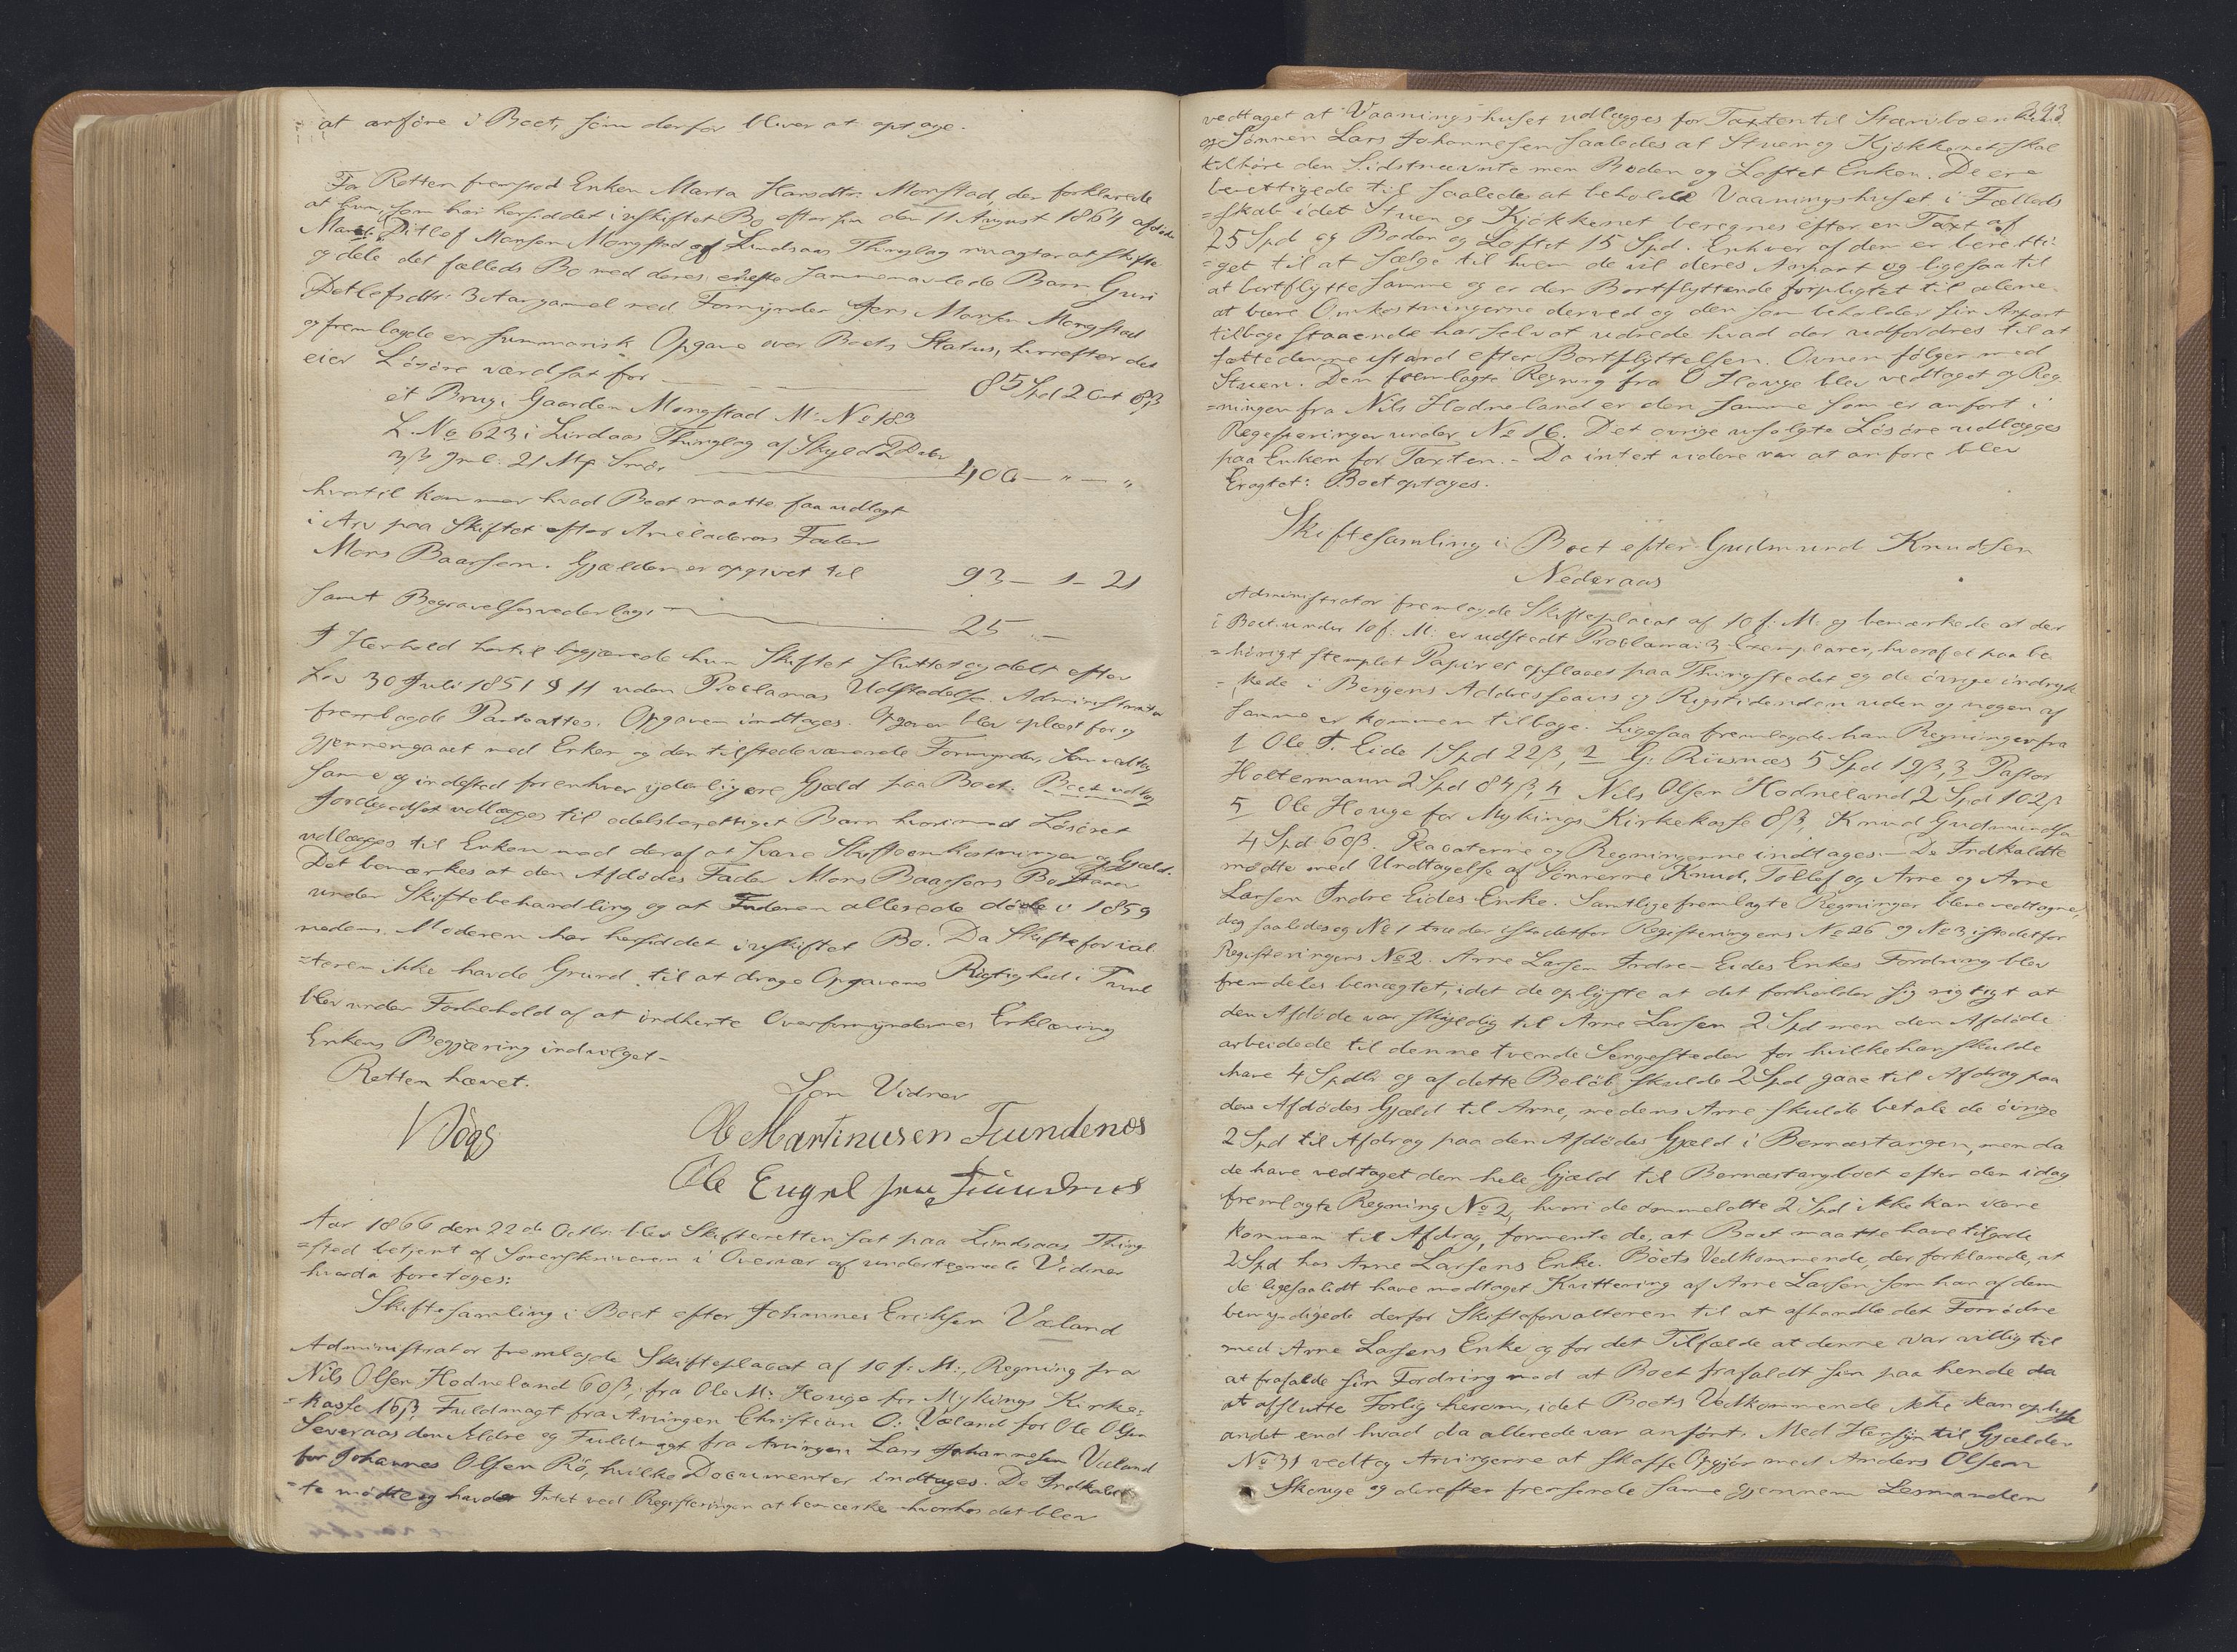 at anføre i Boet, som derfor bliver at optage.
For Retten fremstod Enken Marta Hansdtr. Monstad, der forklarede
at hun, som har hensiddet i uskiftet Bo efter sin den 11 August 1864 afdøde
Mand Ditlef Monsen Mongstad af Lindaas Thinglag agter at skifte
og dele det fælleds Bo med deres eneste sammenavlede Barn Guri
Detlefsdtr. 3 Aar gammel med Formynder Jens Monsen Mongstad
og fremlagde en summarisk Opgave over Boets Status, hvorefter det
eier Løsøre værdsat for 85 Spd 2 Ort 8 β
et Brug i Gaarden Mongstad M: No 183
L. No 623 i Lindaas Thinglag af Skyld 2 Daler
3 β gml. 21 Mk Smør 400 — " — "
hvortil kommer hvad Boet maatte faa udlagt
i Arv paa Skiftet efter Arveladerens Fader
Mons Baarsen. Gjælden er opgivet til 93 — 1 — 21
samt Begravelsesvederlag 25 —
I Henhold hertil begjærede hun Skiftet sluttet og delt efter
Lov 30 Juli 1851 § 11 uden Proclamas Udstedelse. Administrator
fremlagde Panteattest. Opgaven indtages. Opgaven blev oplæst for og
gjennemgaaet med Enken og den tilstedeværende Formynder, som vedtog
samme og indestod for enhver yderligere Gjæld paa Boet. Boet vedtog
Jordegodset udlægges til odelsberettiget Barn hvorimod Løsøret
udlægges til Enken mod deraf at svare Skifteomkostninger og Gjæld.
Det bemærkes at den Afdødes Fader Mons Baarsens Bo staaer
under Skiftebehandling og at Faderen allerede døde i 1859
medens Moderen har hensiddet i uskiftet Bo. Da Skifteforval-
=teren ikke havde Grund til at drage Opgavens Rigtighed i Tvivl
blev under Forbehold af at indhente Overformynderiets Erklæring
Enkens Begjæring indvilget.
Retten hævet. Som Vidner
Ole Martinusen Fundenes
Ole Engel Fundnes
Aar 1866 den 22de Octbr. blev Skifteretten sat paa Lindaas Thing
=sted betjent af Sorenskriveren i Overvær af undertegnede Vidner
hvorda foretoges:
Skiftesamling i Boet efter Johannes Eriksen Væland
Administrator fremlagde Skifteplacat af 10 f: M:, Regning fra
Nils Olsen Hodneland 60 β, fra Ole M: Houge for Mykings Kirke=
=kasse 16 β, Fuldmagt fra Arvingen Christian O: Væland for Ole Olsen
Severaas den Ældre og Fuldmagt fra Arvingen Lars Johannesen Væland
for Johannes Olsen Rö, hvilke Documenter indtages. De Indkald-
=te mødte og havde Intet ved Registeringen at bemærke hvorhos det blev
293
vedtaget at Vaaningshuset udlægges for Taxten til Stervboenken
og Sønnen Lars Johannesen saaledes at Stuen og Kjøkkenet skal
tilhøre den Sidstnævnte men Boden og Loftet Enken. De ere
berettigede til saaledes at beholde Vaaningshuset i Fælleds
=skab idet Stuen og Kjøkkenet beregnes efter en Taxt af
25 Spd og Boden og Loftet 15 Spd. Enhver af dem er beretti-
=get til at sælge til hvem de vil deres Anpart og ligesaa til
at bortflytte samme og er den Bortflyttende forpligtet til alene
at bære Omkostningerne derved og den som beholder sin Anpart
tilbagestaaende har selv at udrede hvad der udfordres til at
sætte denne istand efter Bortflyttelsen. Ovnen følger med
Stuen. Den fremlagte Regning fra O Houge blev vedtaget og Reg
=ningen fra Nils Hodneland er den samme som er anført i
Registeringen under No 16. Det øvrige usolgte Løsøre udlægges
paa Enken for Taxten. – Da intet videre var at anføre blev
Eragtet: Boet optages.
Skiftesamling i Boet efter Gudmund Knudsen
Nederaas
Administrator fremlagde Skifteplacat af 10 f: M: og bemærkede at der
i Boet under 10 f: M: er udstedt Proclama i 3 Exemplarer, hvoraf et paa be-
=hørigt stemplet Papir er opslaaet paa Thingstedet og de øvrige indryk
=kede i Bergens Addresseavis og Rigstidenden uden og nogen af
samme er kommen tilbage. Ligesaa fremlagde han Regninger fra
1 Ole T. Eide 1 Spd 22 β, 2 G: Risnæs 5 Spd 19 β, 3 Pastor
Holtermann 2 Spd 84 β, 4 Nils Olsen Hodneland 2 Spd 102 β
5 Ole Houge for Mykings Kirkekasse 8 β, Knud Gudmundsen
4 Spd 60 β. Placaterne og Regningerne indtages. – De Indkaldte
mødte med Undtagelse af Sønnerne Knud, Tollef og Arne og Arne
Larsen Indre Eides Enke. Samtlige fremlagte Regninger bleve vedtagne,
dog saaledes og No 1 træder istedetfor Registeringens No 26 og No 3 istedetfor
Registeringens No 2. Arne Larsen Indre-Eides Enkes Fordring blev
fremdeles benægtet, idet de oplyste at det forholder sig rigtigt at
den Afdøde var skyldig til Arne Larsen 2 Spd men den Afdøde
arbeidede til denne tvende Sengesteder for hvilke han skulde
have 4 Spdlr og af dette Beløb skulde 2 Spd gaae til Afdrag paa
den Afdødes Gjæld til Arne, medens Arne skulde betale de øvrige
2 Spd til Afdrag paa den Afdødes Gjæld i Bernæstangen, men da
de have vedtaget den hele Gjæld til Bernæstangboet efter den idag
fremlagte Regning No 2, hvori de ommeldte 2 Spd ikke kan være
kommen til Afdrag, formente de, at Boet maatte have tilgode
2 Spd hos Arne Larsens Enke. Boets Vedkommende, der forklarede, at
de ligesaalidt have modtaget Kvittering af Arne Larsen som han af dem
bemyndigede derfor Skifteforvalteren til at afhandle det Fornødne
med Arne Larsens Enke og for det Tilfælde at denne var villig til
at frafalde sin Fordring mod at Boet frafaldt sin paa hende da
at afslutte Forlig herom, idet Boets Vedkommende ikke kan oplyse
andet end hvad da allerede var anført. Med Hensyn til Gjælden
No 31 vedtog Arvingerne at skaffe Opgjør med Anders Olsen
Skouge og derefter fremsende samme gjennem Lensmanden